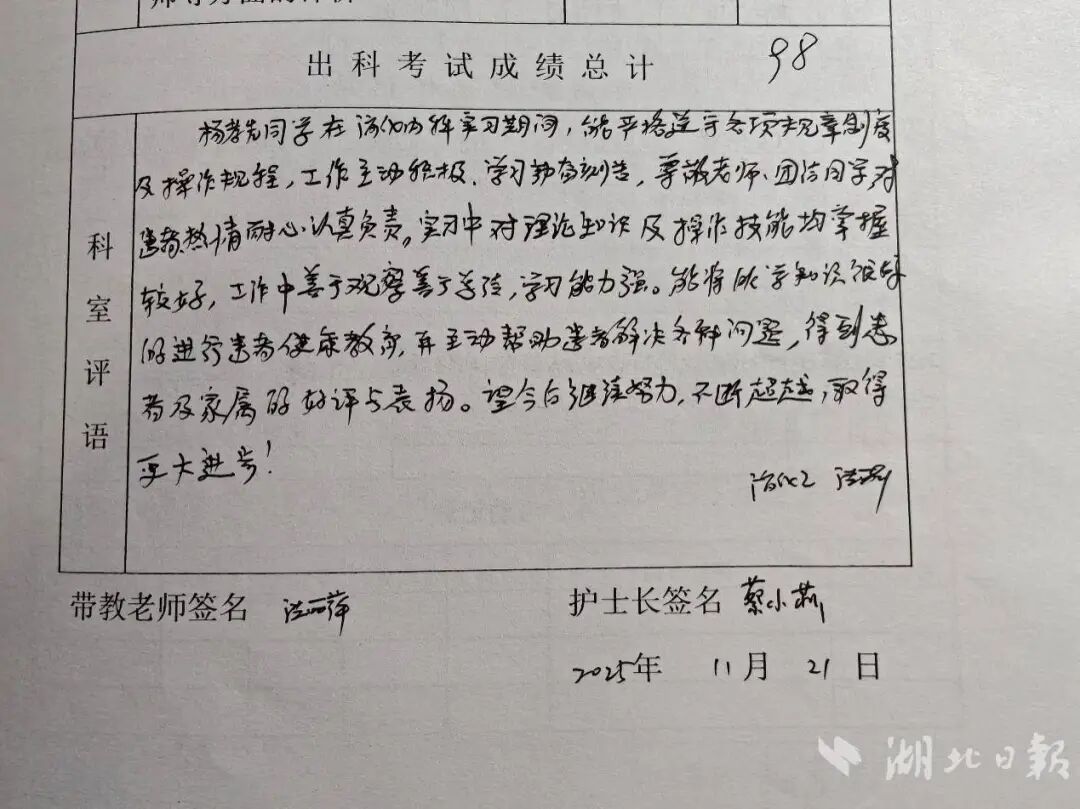 出科考试成绩总计 98
科室评语
杨孝先同学在消化内科实习期间,能严格遵守各项规章制度
及操作规程,工作主动积极、学习勤奋刻苦,尊敬老师、团结同学对
患者热情耐心、认真负责。实习中对理论知识及操作技能均掌握
较好,工作中善于观察善于总结,学习能力强。能将所学知识很好
的进行患者健康教育,再主动帮助患者解决各种问题,得到患
者及家属的好评与表扬。望今后继续努力,不断超越,取得
更大进步!
消化
带教老师签名
护士长签名 蔡小莉
2025年 11月 21日
湖北日报